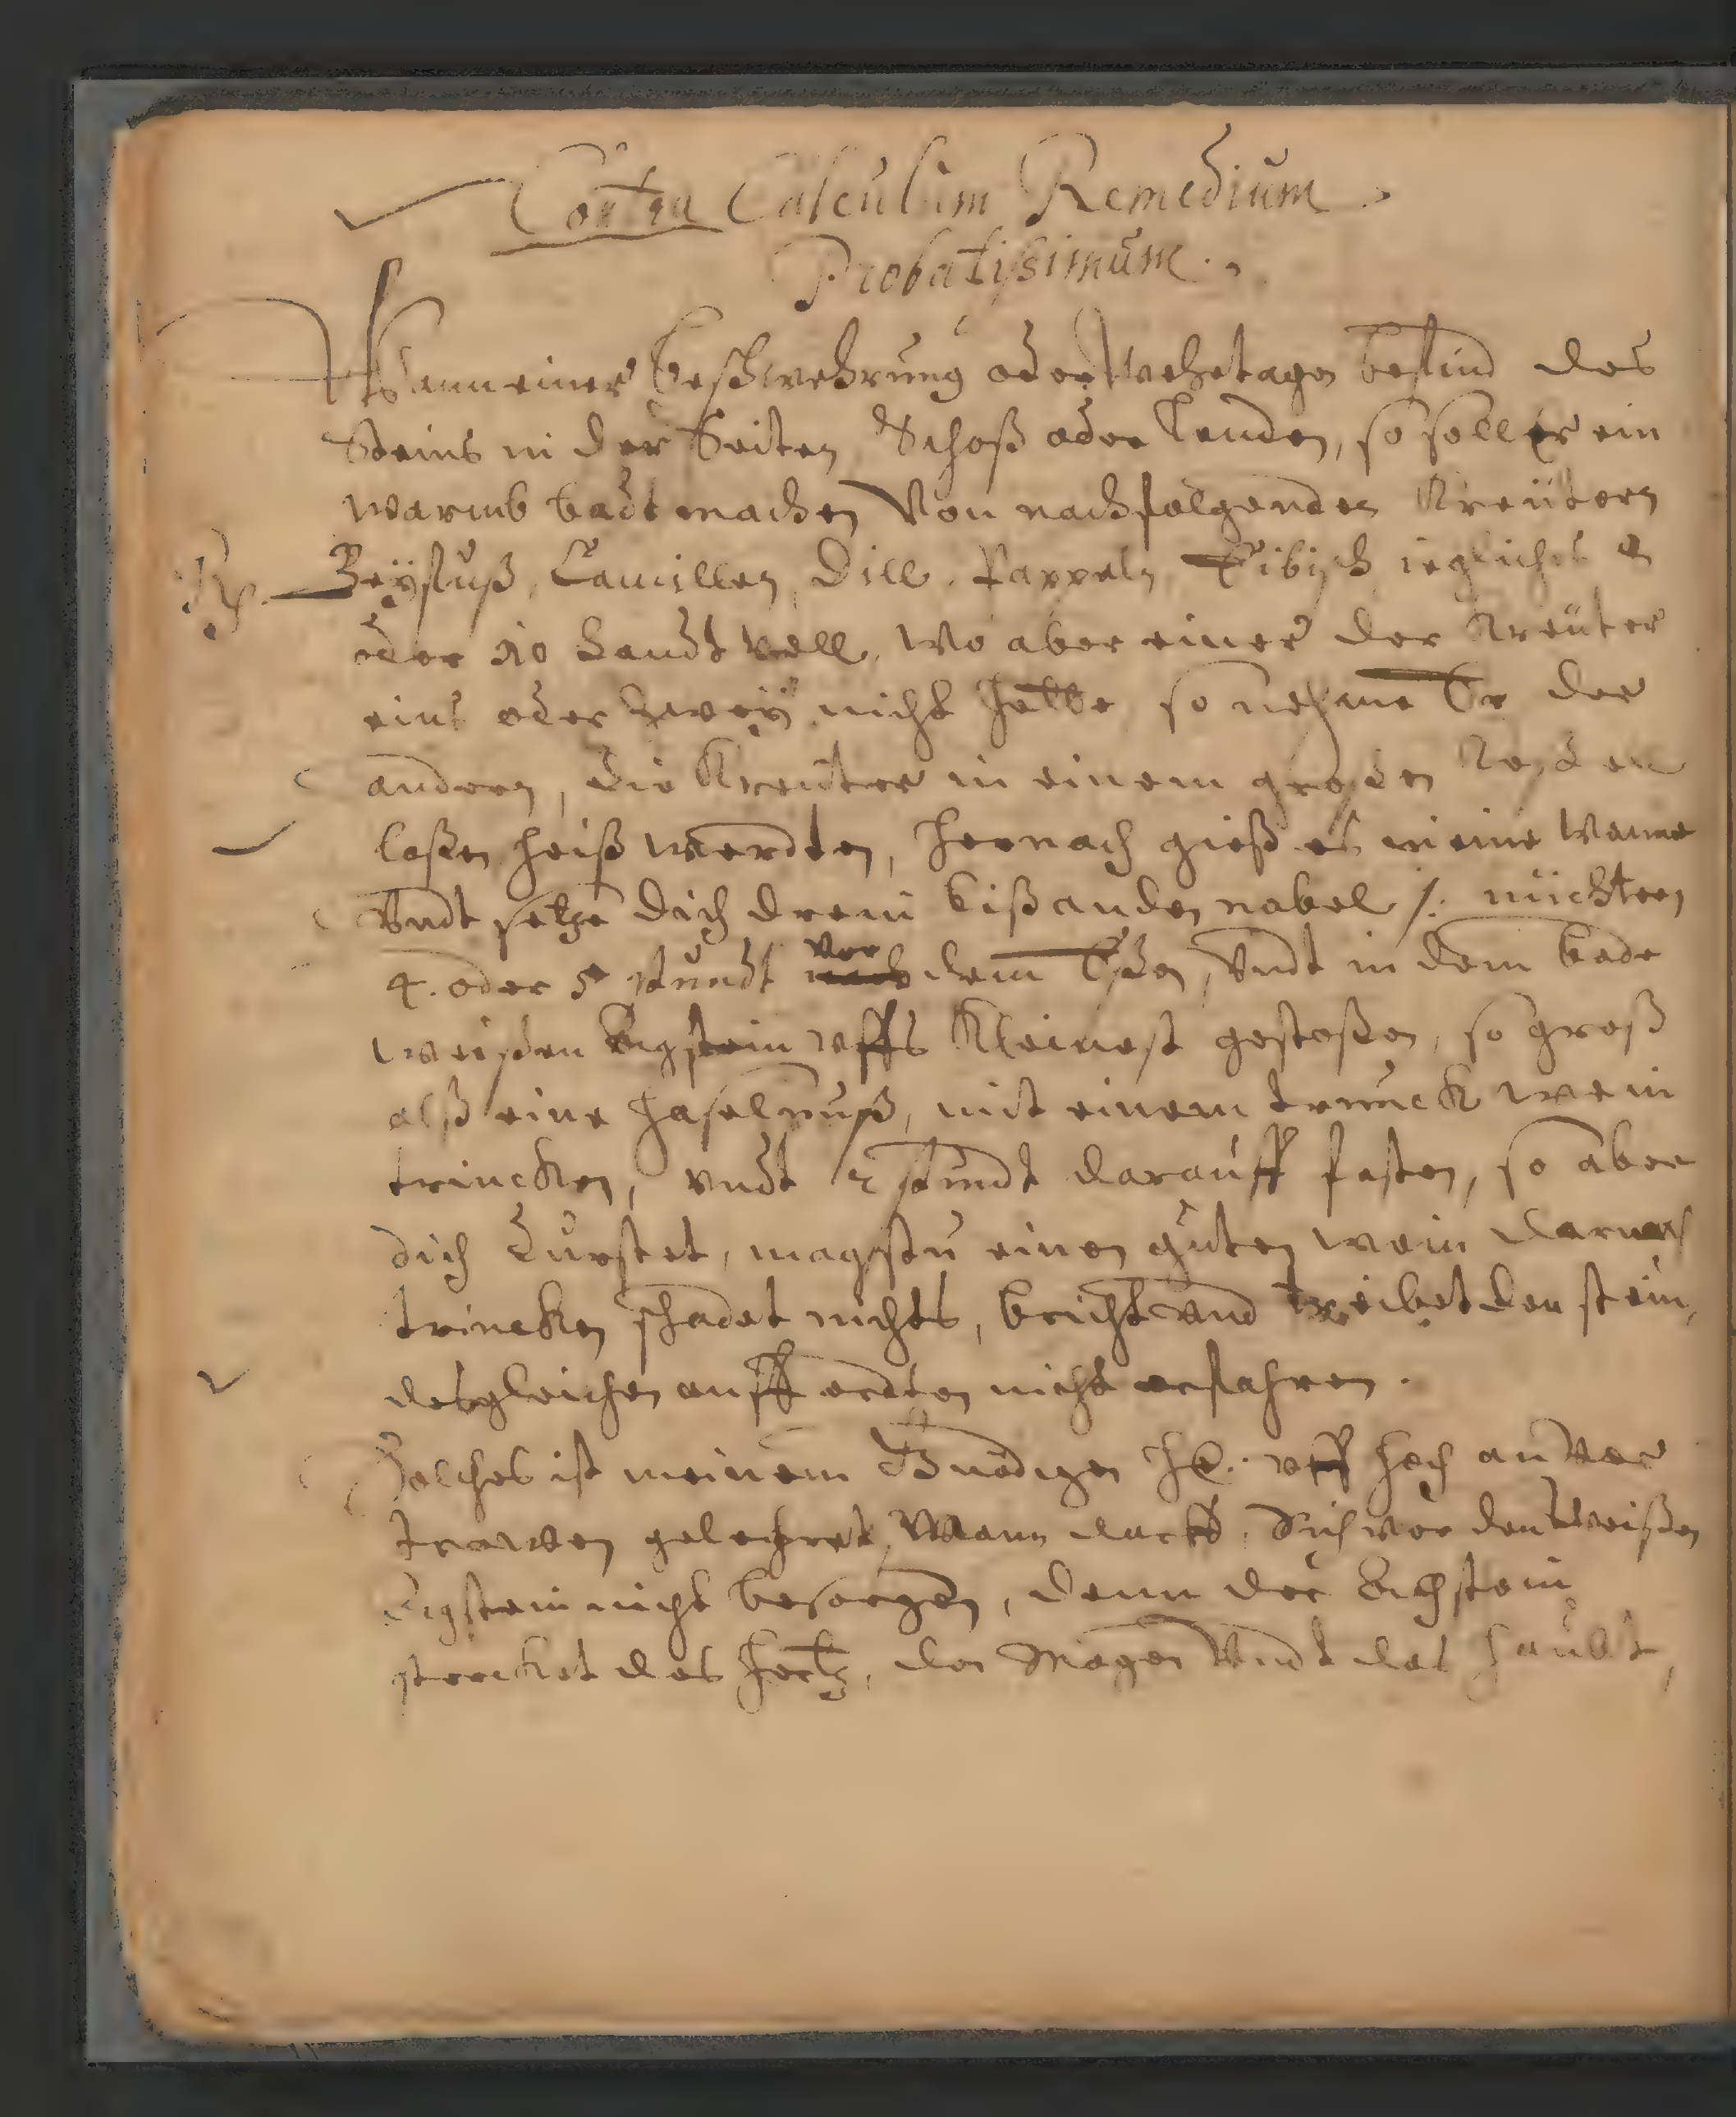 Contra Calculum Remedium
Probatissimum.
Wann einer beschwehrung oder wehetagen befind des
Steins in der Seiten, Schoß oder Lenden, so soll er ein
warmb badt machen Von nachfolgenden Kreütern
Rp. Beÿfuß, Camillen, Dill, Pappeln, Eibisch ieglichs 8
oder 10 handt voll, Wo aber einer der Kreüter
eins oder Zweÿ nicht hette, so nehme Er der
andern, die Kreuter in einem großen Keßel
laßen heiß werdten, hernach gieß es in eine Wanne
Vndt setze dich drein biß an den nabel /: nüchtern
4. oder 5 stundt nach vor dem Eßen, Vndt in dem bade
weißen Augstein vffs Kleinest gestoßen, so groß
alß eine haselnuß, mit einem trunck wein
trincken, vndt 2 stundt darauff fasten, so aber
dich durstet, magstu einen guten wein darnach
trincken schadet nichts, bricht vnd treibet den stein,
desgleichen auff erdten nicht erfahren.
Solches ist meinem Gnedigen H. vff hoch an Ver
trawen gelehret, Mann darff sich vor den Weißen
Augstein nicht besorgen, denn der Augstein
stercket das hertz, den Magen Vndt das haubt,